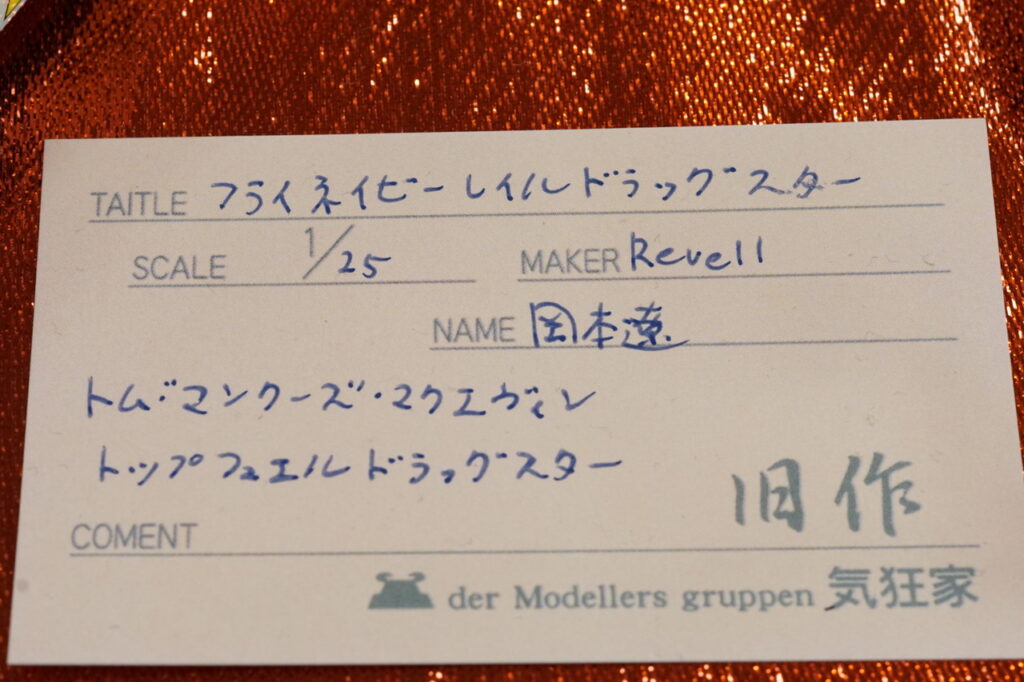 TAITLE フライネイビーレイルドラッグスター
SCALE 1/25 MAKER Revell
NAME 岡本遼
トム・マンクーズ・マクエヴィン
トップフュエルドラッグスター
旧作
COMENT
der Modellers gruppen 気狂家